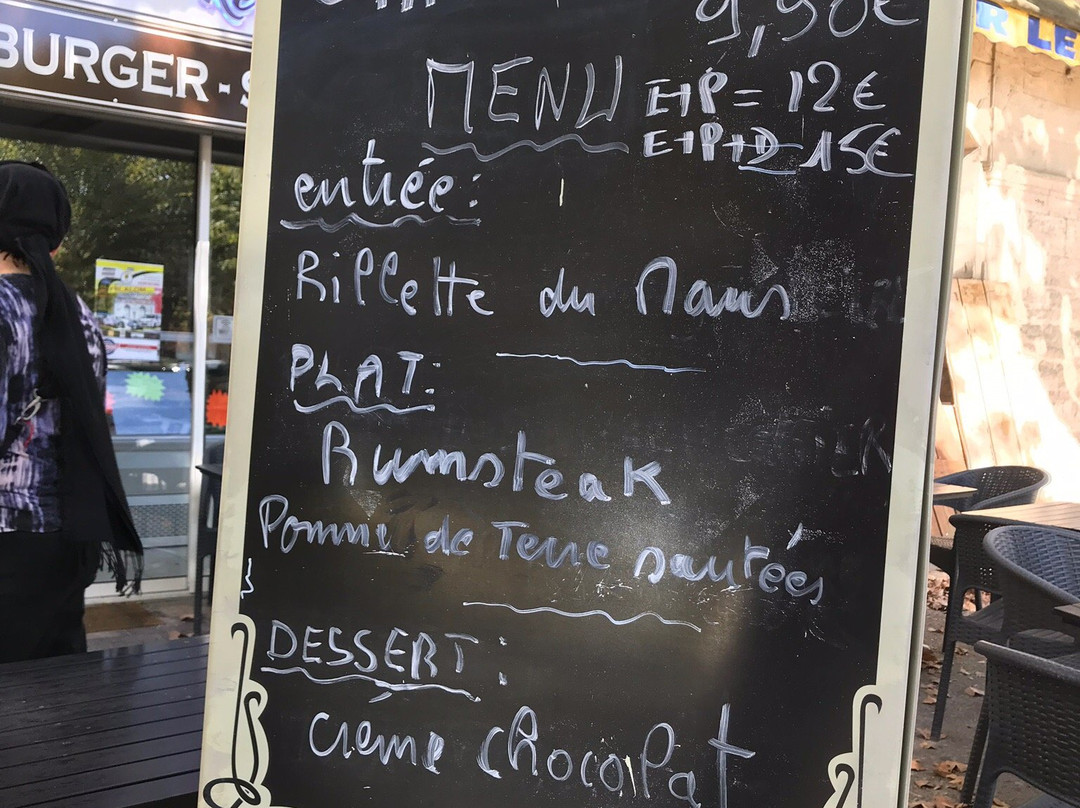 BURGER - S
R LE
9,90€
MENU E+P = 12€
E+P+D 15€
entrée:
Rillette du Mans
PLAT:
Rumsteak
Pomme de Terre sautées
DESSERT:
crème chocolat